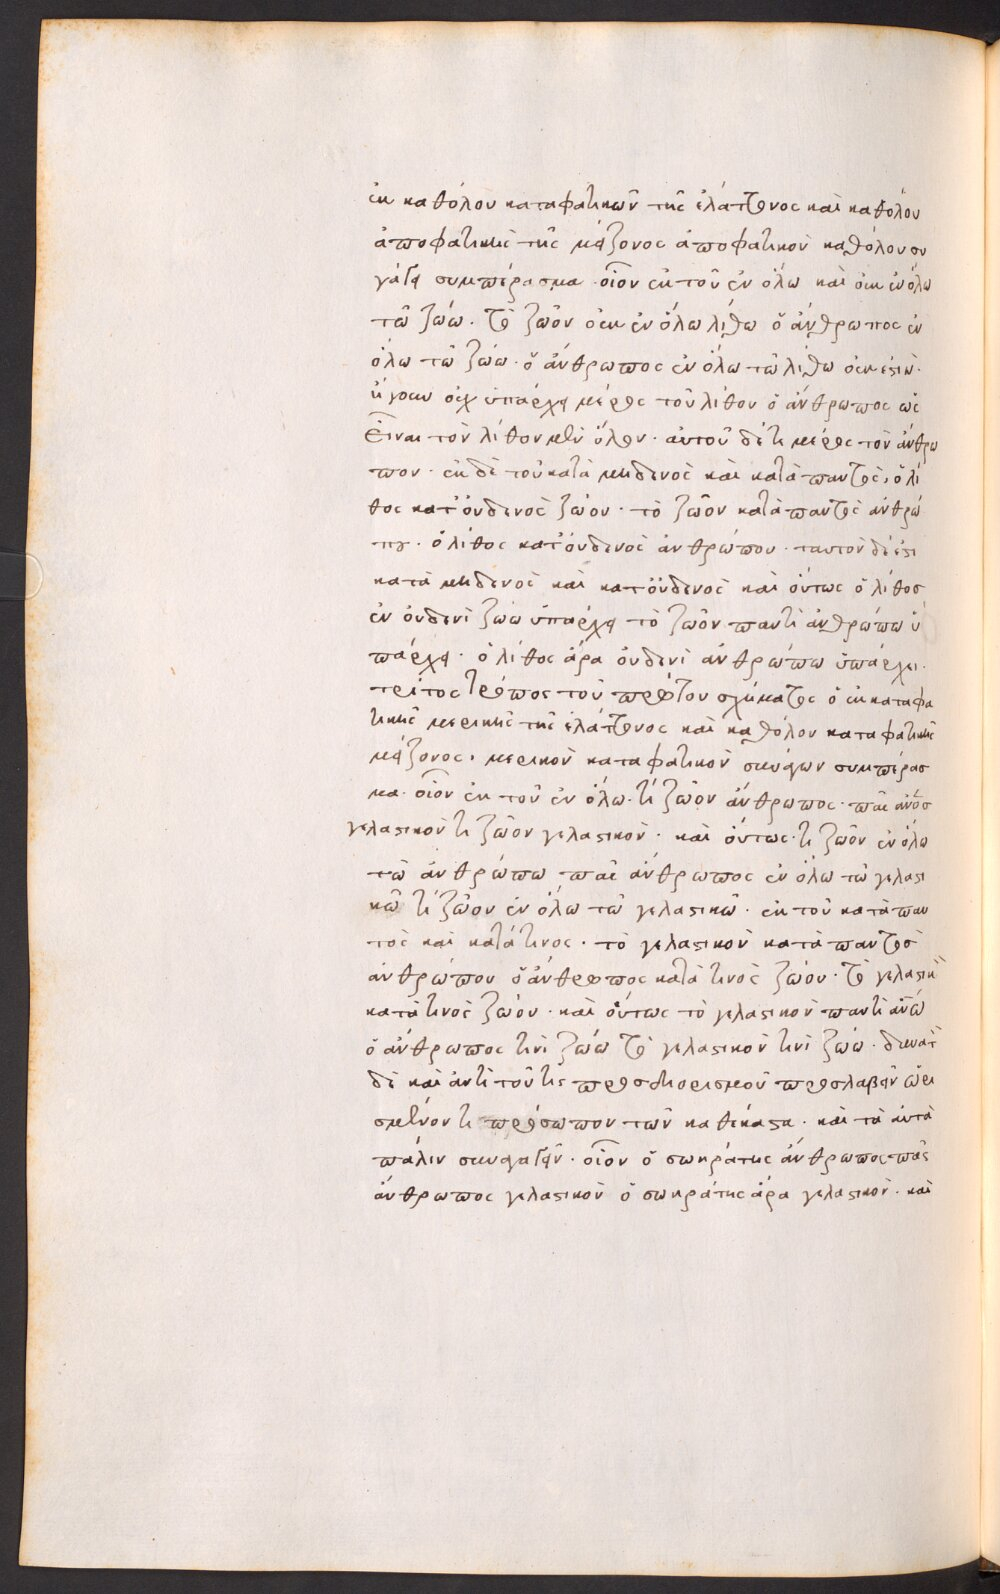 ἐκ καθόλου καταφατικῶν τῆς ἐλάττονος καὶ καθόλου
ἀποφατικῆς τῆς μείζονος ἀποφατικὸν καθόλου συ
νάγει συμπέρασμα · οἷον ἐκ τοῦ ἐν ὅλω καὶ οὐκ ἐν ὅλω
τῶ ζώω · τὸ ζῶον οὐκ ἐν ὅλω λίθω ὁ ἄνθρωπος ἐν
ὅλω τῶ ζώω · ὁ ἄνθρωπος ἐν ὅλω τῶ λίθω οὐκ ἔστιν ·
ἤγουν οὐχ ὑπάρχει μέρος τοῦ λίθου ὁ ἄνθρωπος ὡς
εἶναι τὸν λίθον μὲν ὅλον · αὐτοῦ δέ τι μέρος τὸν ἄνθρω
πον · ἐκ δὲ τοῦ κατὰ μηδενὸς καὶ κατὰ παντὸς, ὁ λί
θος κατ' οὐδενὸς ζώου · τὸ ζῶον κατὰ παντὸς ἀνθρώ
που · ὁ λίθος κατ' οὐδενὸς ἀνθρώπου · ταυτὸν δέ ἐστι
κατὰ μηδενὸς καὶ κατ' οὐδενὸς καὶ οὕτως ὁ λίθος
ἐν οὐδενὶ ζώω ὑπάρχει τὸ ζῶον παντὶ ἀνθρώπω ὑ
πάρχει · ὁ λίθος ἄρα οὐδενὶ ἀνθρώπω ὑπάρχει ·
τρίτος τρόπος τοῦ πρώτου σχήματος ὁ ἐκ καταφα
τικῆς μερικῆς τῆς ἐλάττονος καὶ καθόλου καταφατικῆς
μείζονος · μερικὸν καταφατικὸν συνάγων συμπέρασ
μα · οἷον ἐκ τοῦ ἐν ὅλω · τὶ ζῶον ἄνθρωπος · πᾶς ἄνος
γελαστικὸν τὶ ζῶον γελαστικὸν · καὶ οὕτως · τὶ ζῶον ἐν ὅλω
τῶ ἀνθρώπω πᾶς ἄνθρωπος ἐν ὅλω τῶ γελαστι
κῶ τὶ ζῶον ἐν ὅλω τῶ γελαστικῶ · ἐκ τοῦ κατὰ παν
τὸς καὶ κατά τινος · τὸ γελαστικὸν κατὰ παντὸς
ἀνθρώπου ὁ ἄνθρωπος κατὰ τινὸς ζώου · τὸ γελαστικὸν
κατὰ τινὸς ζώου · καὶ οὕτως τὸ γελαστικὸν παντὶ ἀνω
ὁ ἄνθρωπος τινὶ ζώω τὸ γελαστικὸν τινὶ ζώω · δυνατ
δὲ καὶ ἀντὶ τοῦ τὶς προσδιορισμοῦ προσλαβεῖν ὡρι
σμένον τι πρόσωπον τῶν καθέκαστα · καὶ τὰ αὐτὰ
πάλιν συναγαγεῖν · οἷον ὁ σωκράτης ἄνθρωπος πᾶς
ἄνθρωπος γελαστικὸν ὁ σωκράτης ἄρα γελαστικὸν · καὶ